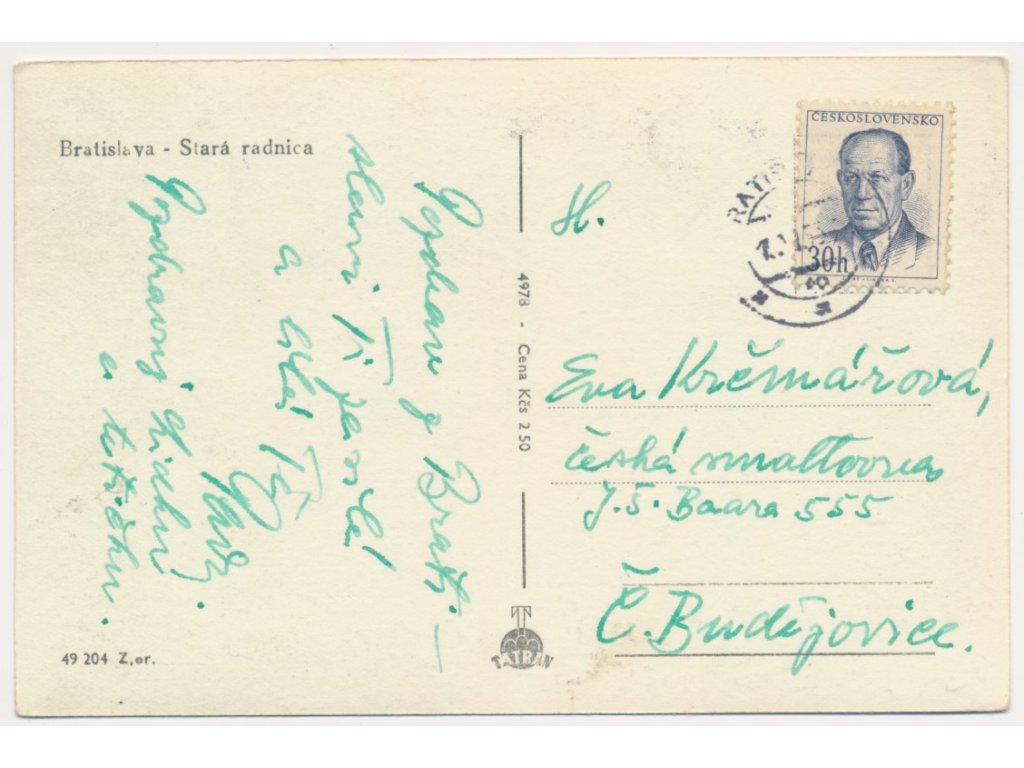 Bratislava - Stará radnica
Pozdrav z Brati-
slavi Ti posílá
a líbá Tě
Pozdravuj
a tetičku.
49 204 Z,or.
4978 - Cena Kčs 2 50
TATRAN
ČESKOSLOVENSKO
30h
Sl.
Eva Krčmářová,
česká smaltovna
J.Š. Baara 555
Č. Budějovice.